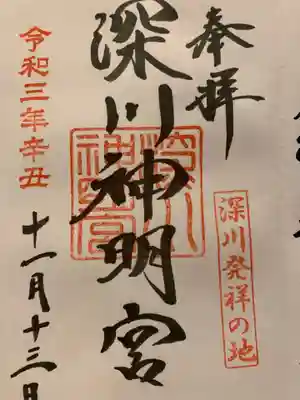 奉拝
深川発祥の地
深川神明宮
深川神明宮
令和三年辛丑
十一月十三日